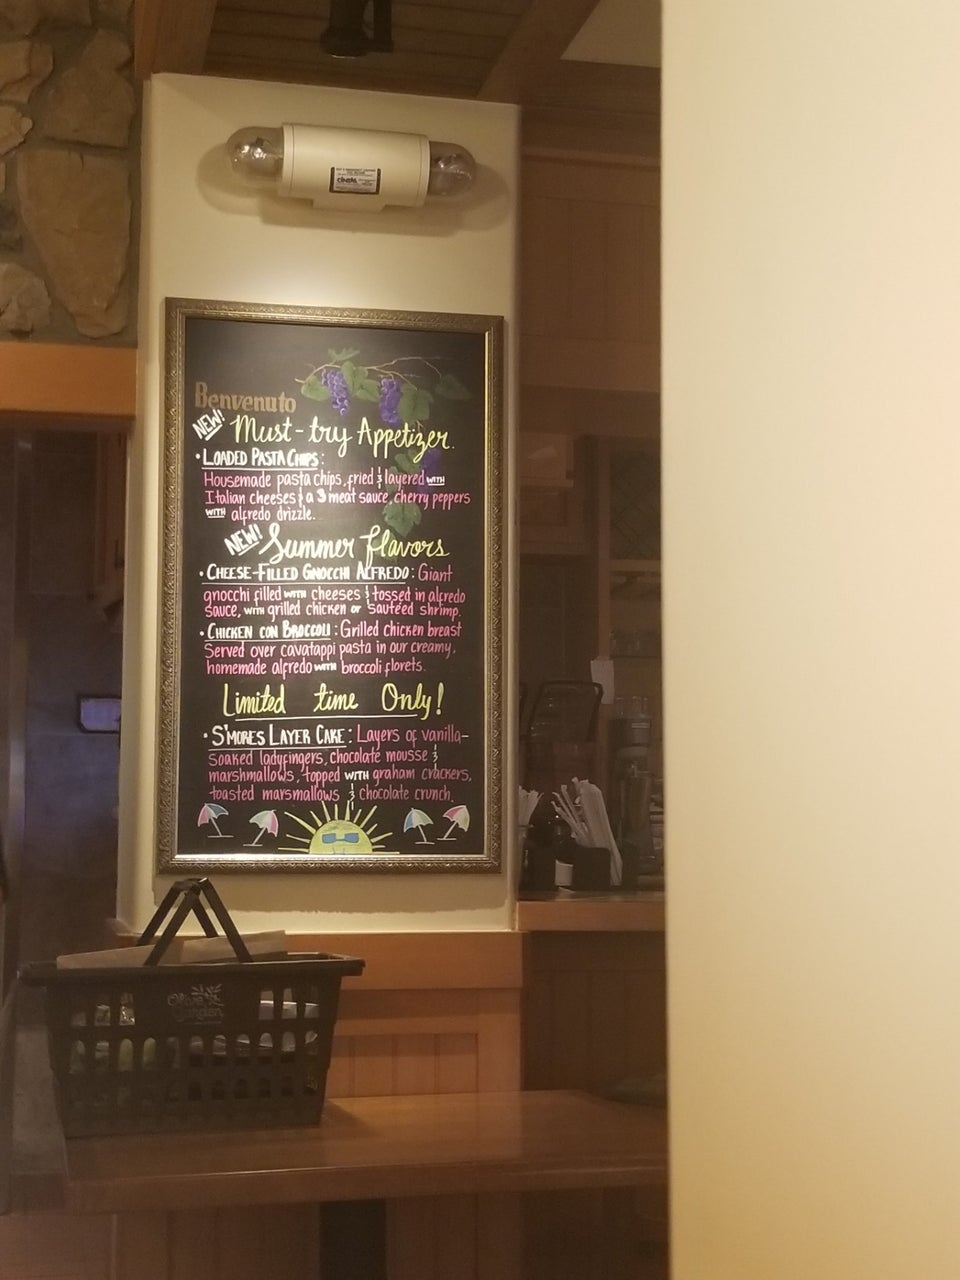 Benvenuto
NEW! Must-try Appetizer.
• LOADED PASTA CHIPS:
Housemade pasta chips, fried & layered WITH
Italian cheeses & a 3 meat sauce, cherry peppers
WITH alfredo drizzle.
NEW! Summer flavors
• CHEESE-FILLED GNOCCHI ALFREDO: Giant
gnocchi filled WITH cheeses & tossed in alfredo
sauce, WITH grilled chicken or sauteed shrimp.
• CHICKEN CON BROCCOLI: Grilled chicken breast
Served over cavatappi pasta in our creamy,
homemade alfredo WITH broccoli florets.
Limited time Only!
• S'MORES LAYER CAKE: Layers of vanilla-
soaked ladyfingers, chocolate mousse &
marshmallows, topped WITH graham crackers,
toasted marsmallows & chocolate crunch.
Olive
Garden